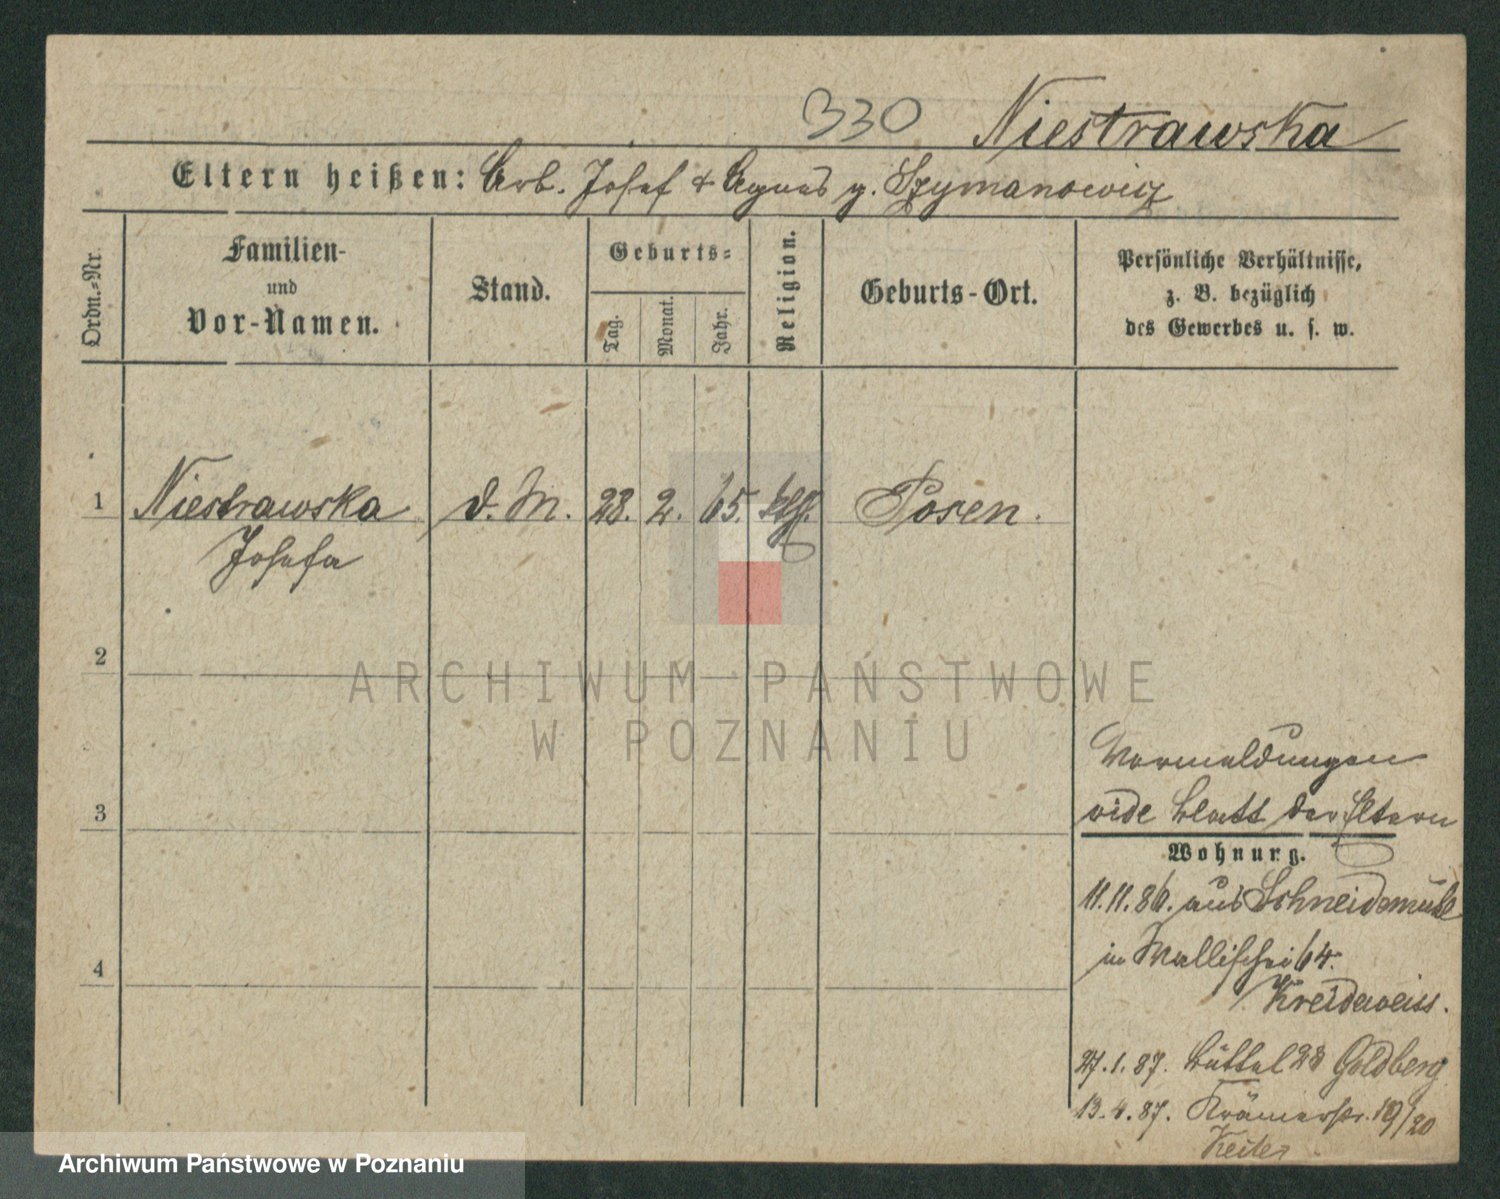 330 Niestrawska
Eltern heißen: Arb. Josef & Agnes g. Szymanowicz
Ordn.-Nr.
Familien-
und
Vor-Namen.
Stand.
Geburts-
Tag.
Monat.
Jahr.
Religion.
Geburts-Ort.
Persönliche Verhältnisse,
z. B. bezüglich
des Gewerbes u. s. w.
1 Niestrawska d. M. 28. 2. 65. Posen.
Josefa
2
ARCHIWUM PAŃSTWOWE
W POZNANIU
Vormeldungen
3 vide Blatt der Eltern
Wohnung.
11.11.86. aus Schneidemühl
4 in Wallischei 64.
Kreideweiss.
27.1.87. Büttel 28 Goldberg
13.4.87. Krämerstr. 19/20
Keiler
Archiwum Państwowe w Poznaniu